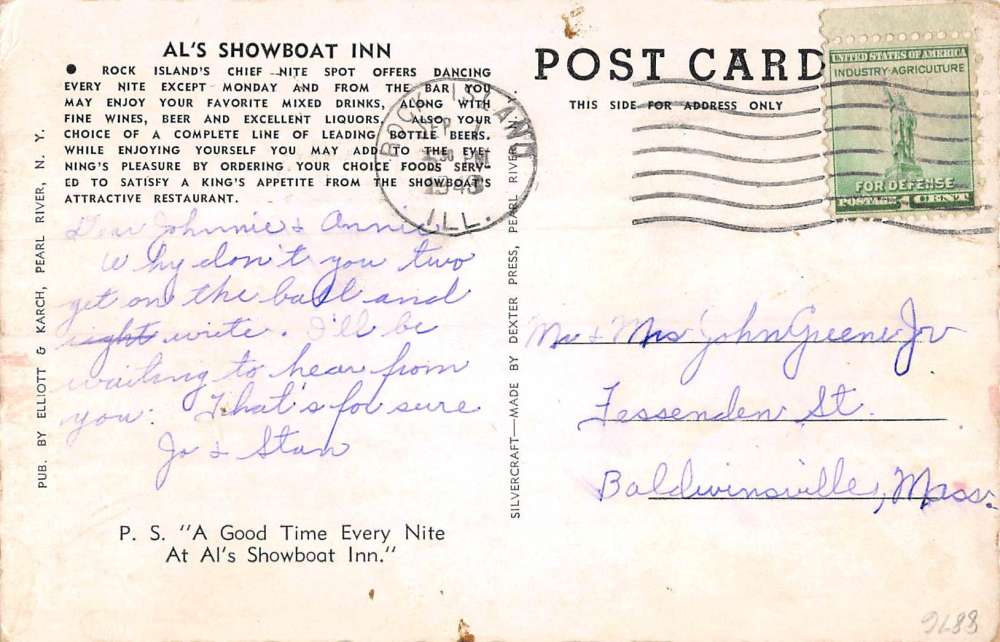 AL'S SHOWBOAT INN
● ROCK ISLAND'S CHIEF NITE SPOT OFFERS DANCING
EVERY NITE EXCEPT MONDAY AND FROM THE BAR YOU
MAY ENJOY YOUR FAVORITE MIXED DRINKS, ALONG WITH
FINE WINES, BEER AND EXCELLENT LIQUORS. ALSO YOUR
CHOICE OF A COMPLETE LINE OF LEADING BOTTLE BEERS.
WHILE ENJOYING YOURSELF YOU MAY ADD TO THE EVE-
NING'S PLEASURE BY ORDERING YOUR CHOICE FOODS SERV-
ED TO SATISFY A KING'S APPETITE FROM THE SHOWBOAT'S
ATTRACTIVE RESTAURANT.
Dear Johnnie & Annie,
Why don't you two
get on the ball and
right write. I'll be
waiting to hear from
you. That's for sure
Jo & Stan
P. S. "A Good Time Every Nite
At Al's Showboat Inn."
PUB. BY ELLIOTT & KARCH, PEARL RIVER, N. Y.
SILVERCRAFT—MADE BY DEXTER PRESS, PEARL RIVER,
ROCK ISLAND
SEP
30 PM
1943
ILL.
POST CARD
THIS SIDE FOR ADDRESS ONLY
UNITED STATES OF AMERICA
INDUSTRY·AGRICULTURE
FOR DEFENSE
POSTAGE 1 CENT
Mr & Mrs John Greene Jr
Fessenden St.
Baldwinsville, Mass.
9688